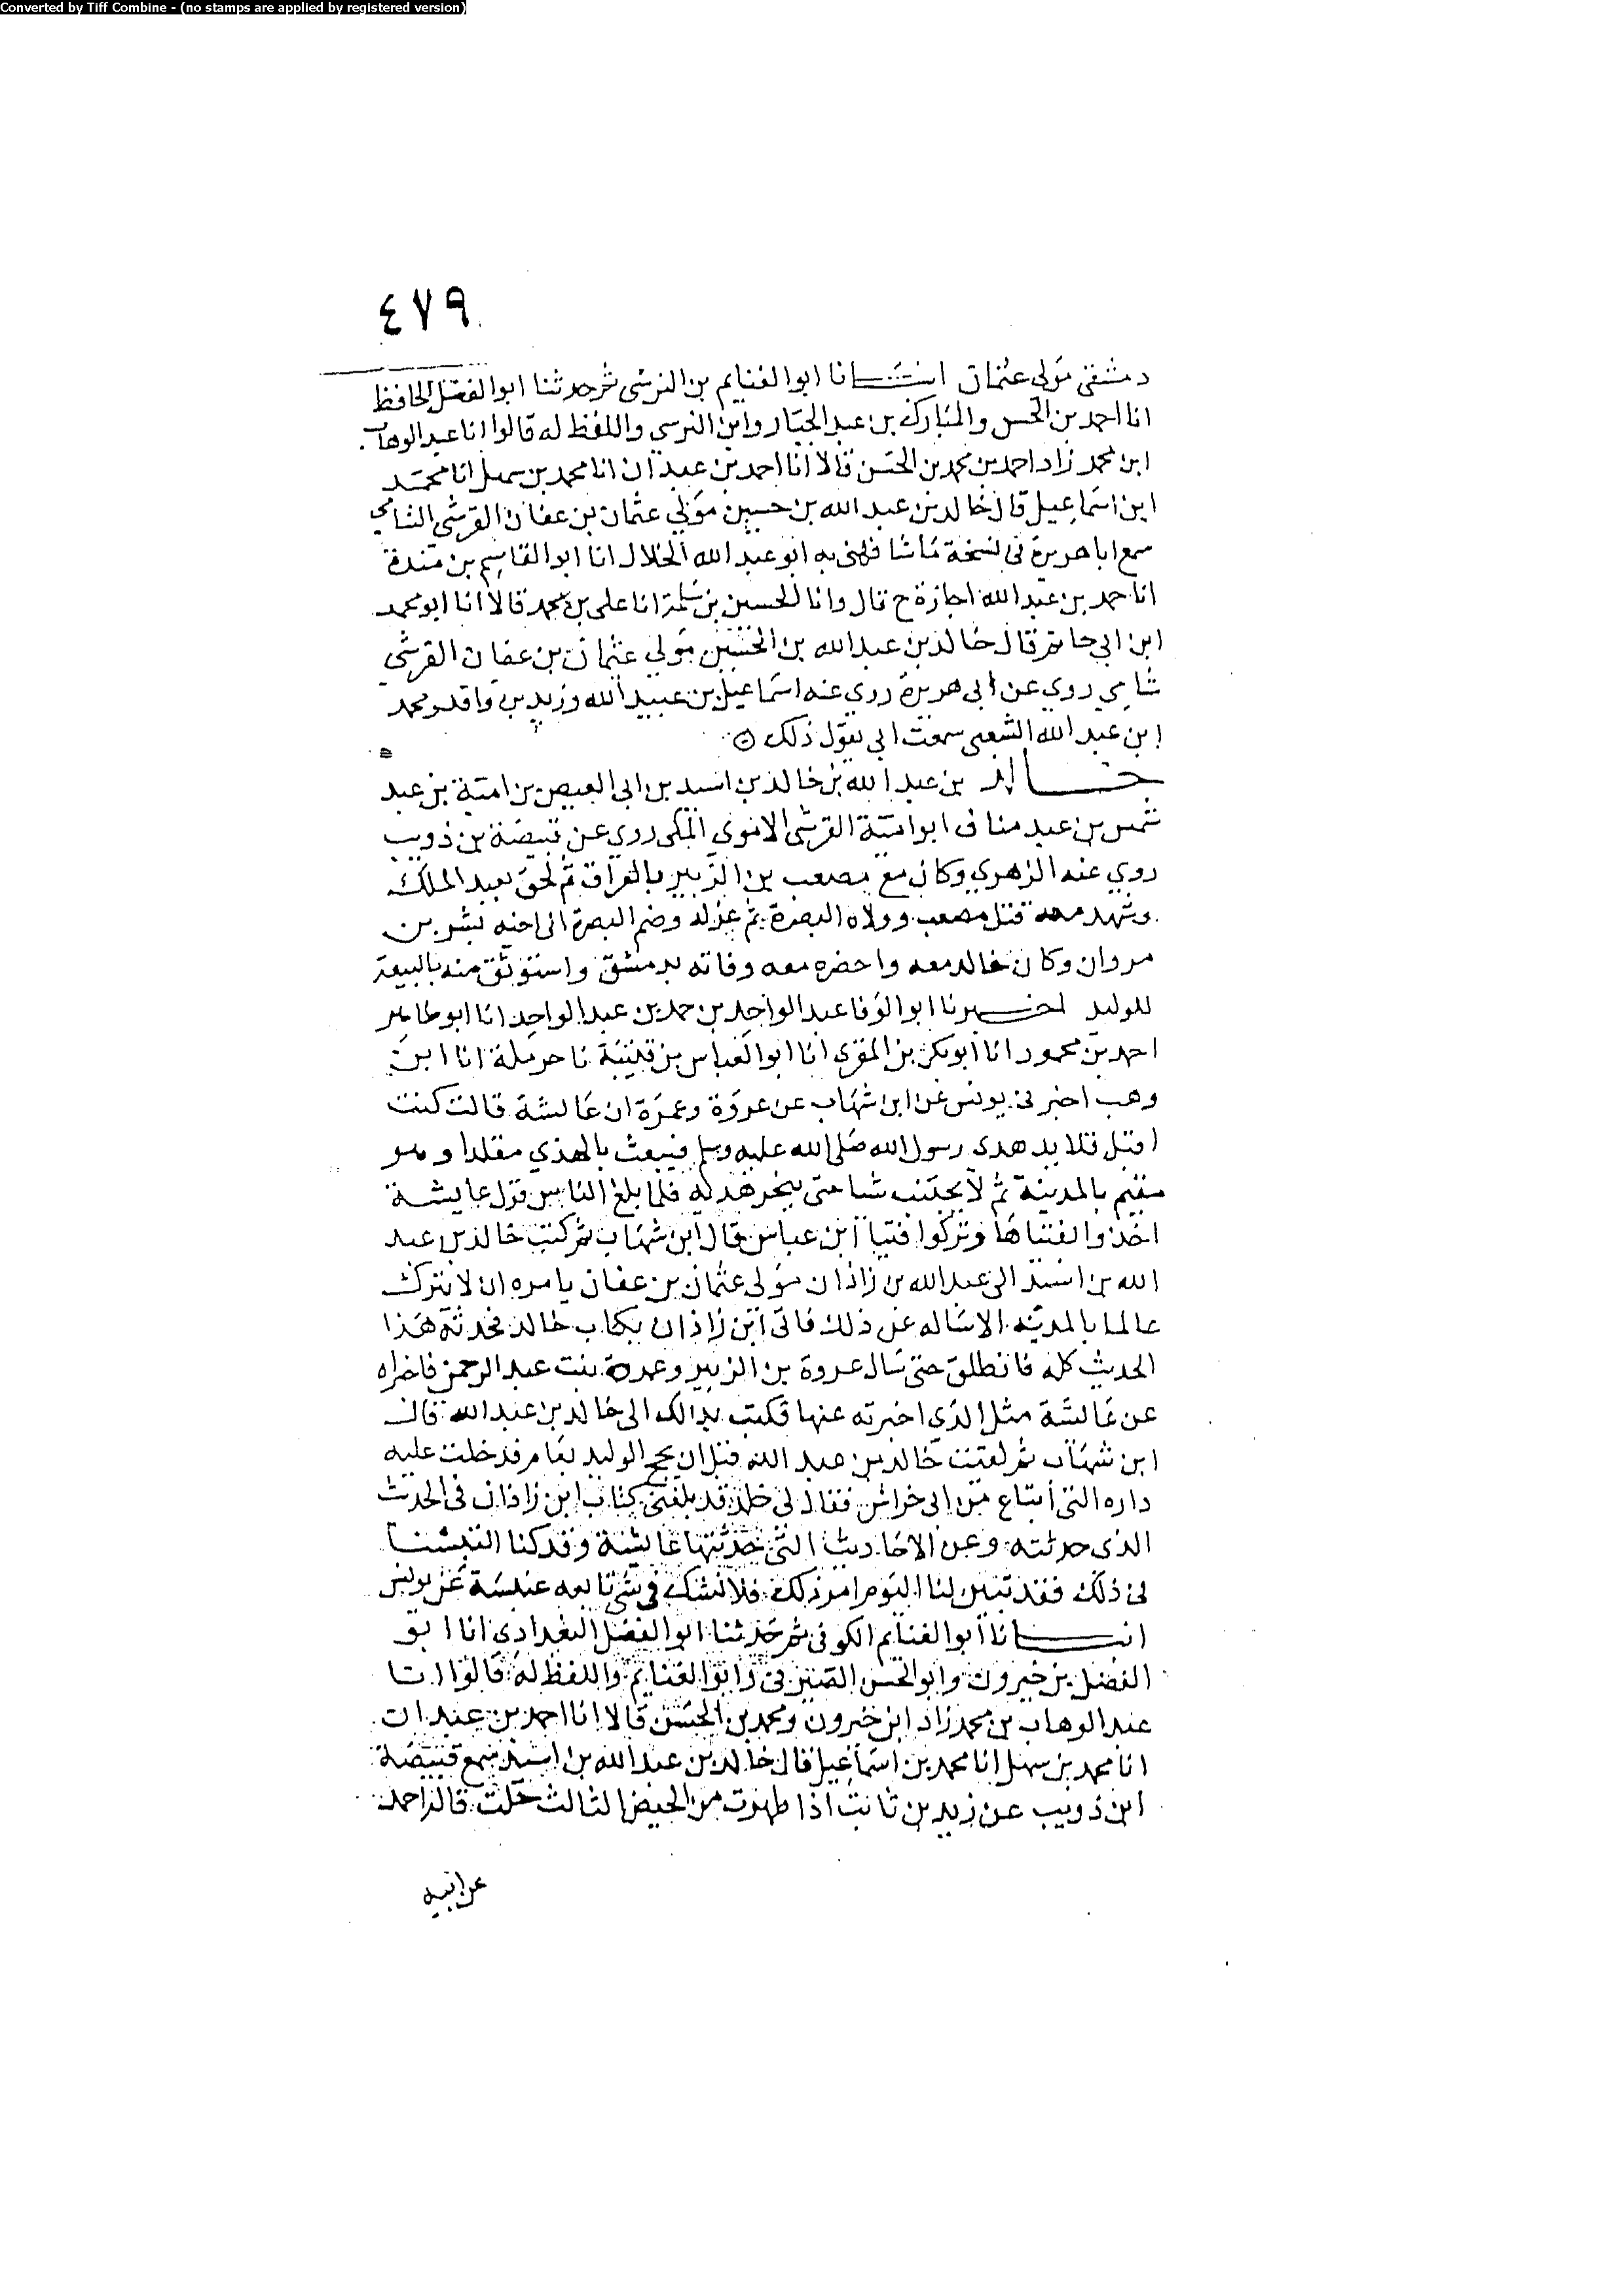 Converted by Tiff Combine - (no stamps are applied by registered version)
٤٧٩
دمشقى مولى عثمان انبــــانا ابوا الغنايم بن النرسى ثم حدثنا ابوا الفضل الحافظ
انا احمد بن الحسن والمبارك بن عبد الجبار وابن النرسى واللفظ له قالوا انا عبد الوهاب
ابن محمد زاد احمد بن محمد بن الحسن قالا انا احمد بن عبدان انا محمد بن سهل انا محمد
ابن اسماعيل قال خالد بن عبد الله بن حسين مولي عثمان بن عفان القرشي الشامي
سمع ابا هريرة فى نسخة ما شافهنى به ابو عبد الله الخلال انا ابوا القاسم بن مندة
انا حمد بن عبد الله اجازة ح قال وانا الحسين بن سلمة انا على بن محمد قالا انا ابو محمد
ابن ابي حاتم قال خالد بن عبد الله بن الحسين مولي عثمان بن عفان القرشي
شامي روي عن ابى هريرة روي عنه اسماعيل بن عبيد الله وزيد بن واقد ومحمد
ابن عبد الله الشعبى سمعت ابي يقول ذلك
خـــالد بن عبد الله بن خالد بن اسيد بن ابى العيص بن امية بن عبد
شمس بن عبد مناف ابوا امية القرشى الاموي المكى روي عن قبيصة بن ذويب
روي عنه الزهري وكان مع مصعب بن الزبير بالعراق ثم لحق بعبد الملك
وشهد معه قتل مصعب وولاه البصرة ثم عزله وضم البصرة الى اخيه بشر بن
مروان وكان خالد معه واحضره معه وفاته بدمشق واستوثق منه بالبيعة
للوليد اخبـــرنا ابوا الوفا عبد الواحد بن حمد بن عبد الواحد انا ابو طاهر
احمد بن محمود انا ابو بكر بن المقرى انا ابوا العباس بن قتيبة نا حرملة انا ابن
وهب اخبرنى يونس عن ابن شهاب عن عروة وعمرة ان عائشة قالت كنت
افتل قلايد هدى رسول الله صلى الله عليه وسلم فيبعث بالهدي مقلدا وهو
مقيم بالمدينة ثم لا يجتنب شيا حتى ينحر هديه فلما بلغ الناس قول عايشة
اخذوا بفتياها وتركوا فتيا ابن عباس قال ابن شهاب ثم كتب خالد بن عبد
الله بن اسيد الى عبد الله بن زاذان مولى عثمان بن عفان يامره ان لا يترك
عالما بالمدينه الا ساله عن ذلك فاتى ابن زاذان بكتاب خالد فحدثته هذا
الحديث كله فانطلق حتى سال عروة بن الزبير وعمرة بنت عبد الرحمن فاخبراه
عن عائشة مثل الذي اخبرته عنها فكتب بذالك الى خالد بن عبد الله قال
ابن شهاب ثم لقيت خالد بن عبد الله قبل ان يحج الوليد بعام فدخلت عليه
داره التى ابتاع من ابى خراش فقال لى خالد قد بلغنى كتاب ابن زاذان فى الحديث
الذى حدثته وعن الاحاديث التى حدثتها عائشة وقد كنا التبسنا
فى ذلك فقد تبين لنا اليوم امر ذلك فلا نشك فى شى تابعه عنبسة عن يونس
انبـــانا ابوا الغنايم الكوفى ثم حدثنا ابوا الفضل البغدادى انا ابو
الفضل بن خيرون وابو الحسن الصيرفى وابوا الغنايم واللفظ له قالوا انا
عبد الوهاب بن محمد زاد ابن خيرون ومحمد بن الحسن قالا انا احمد بن عبدان
انا محمد بن سهل انا محمد بن اسماعيل قال خالد بن عبد الله بن اسيد سمع قبيصة
ابن ذويب عن زيد بن ثابت اذا طهرت من الحيض الثالث حلت قاله احمد
عن ابيه